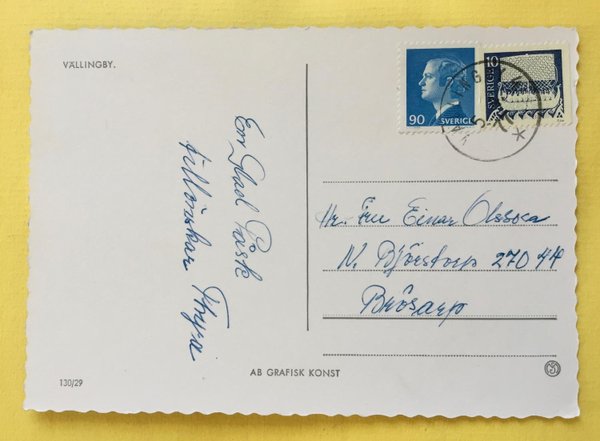 VÄLLINGBY.
90
SVERIGE
10
SVERIGE
En Glad Påsk
tillönskar Thyra
Hr. Fru Einar Olsson
N. Björstorp 270 44
Brösarp
AB GRAFISK KONST
130/29